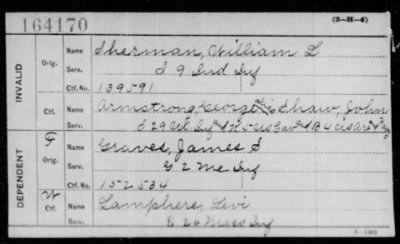 164170
(3-H-4)
INVALID
Orig.
Name
Sherman, William L
Serv.
I 9 Ind Inf
Ctf. No.
139591
Ctf.
Name
Armstrong George Shaw, John
Serv.
DEPENDENT
F
Orig.
Name
Graves, James S
Serv.
G 2 Me Inf
Ctf. No.
152534
W
Ctf.
Name
Lamphere, Levi
Serv.
E 26 Mass Inf